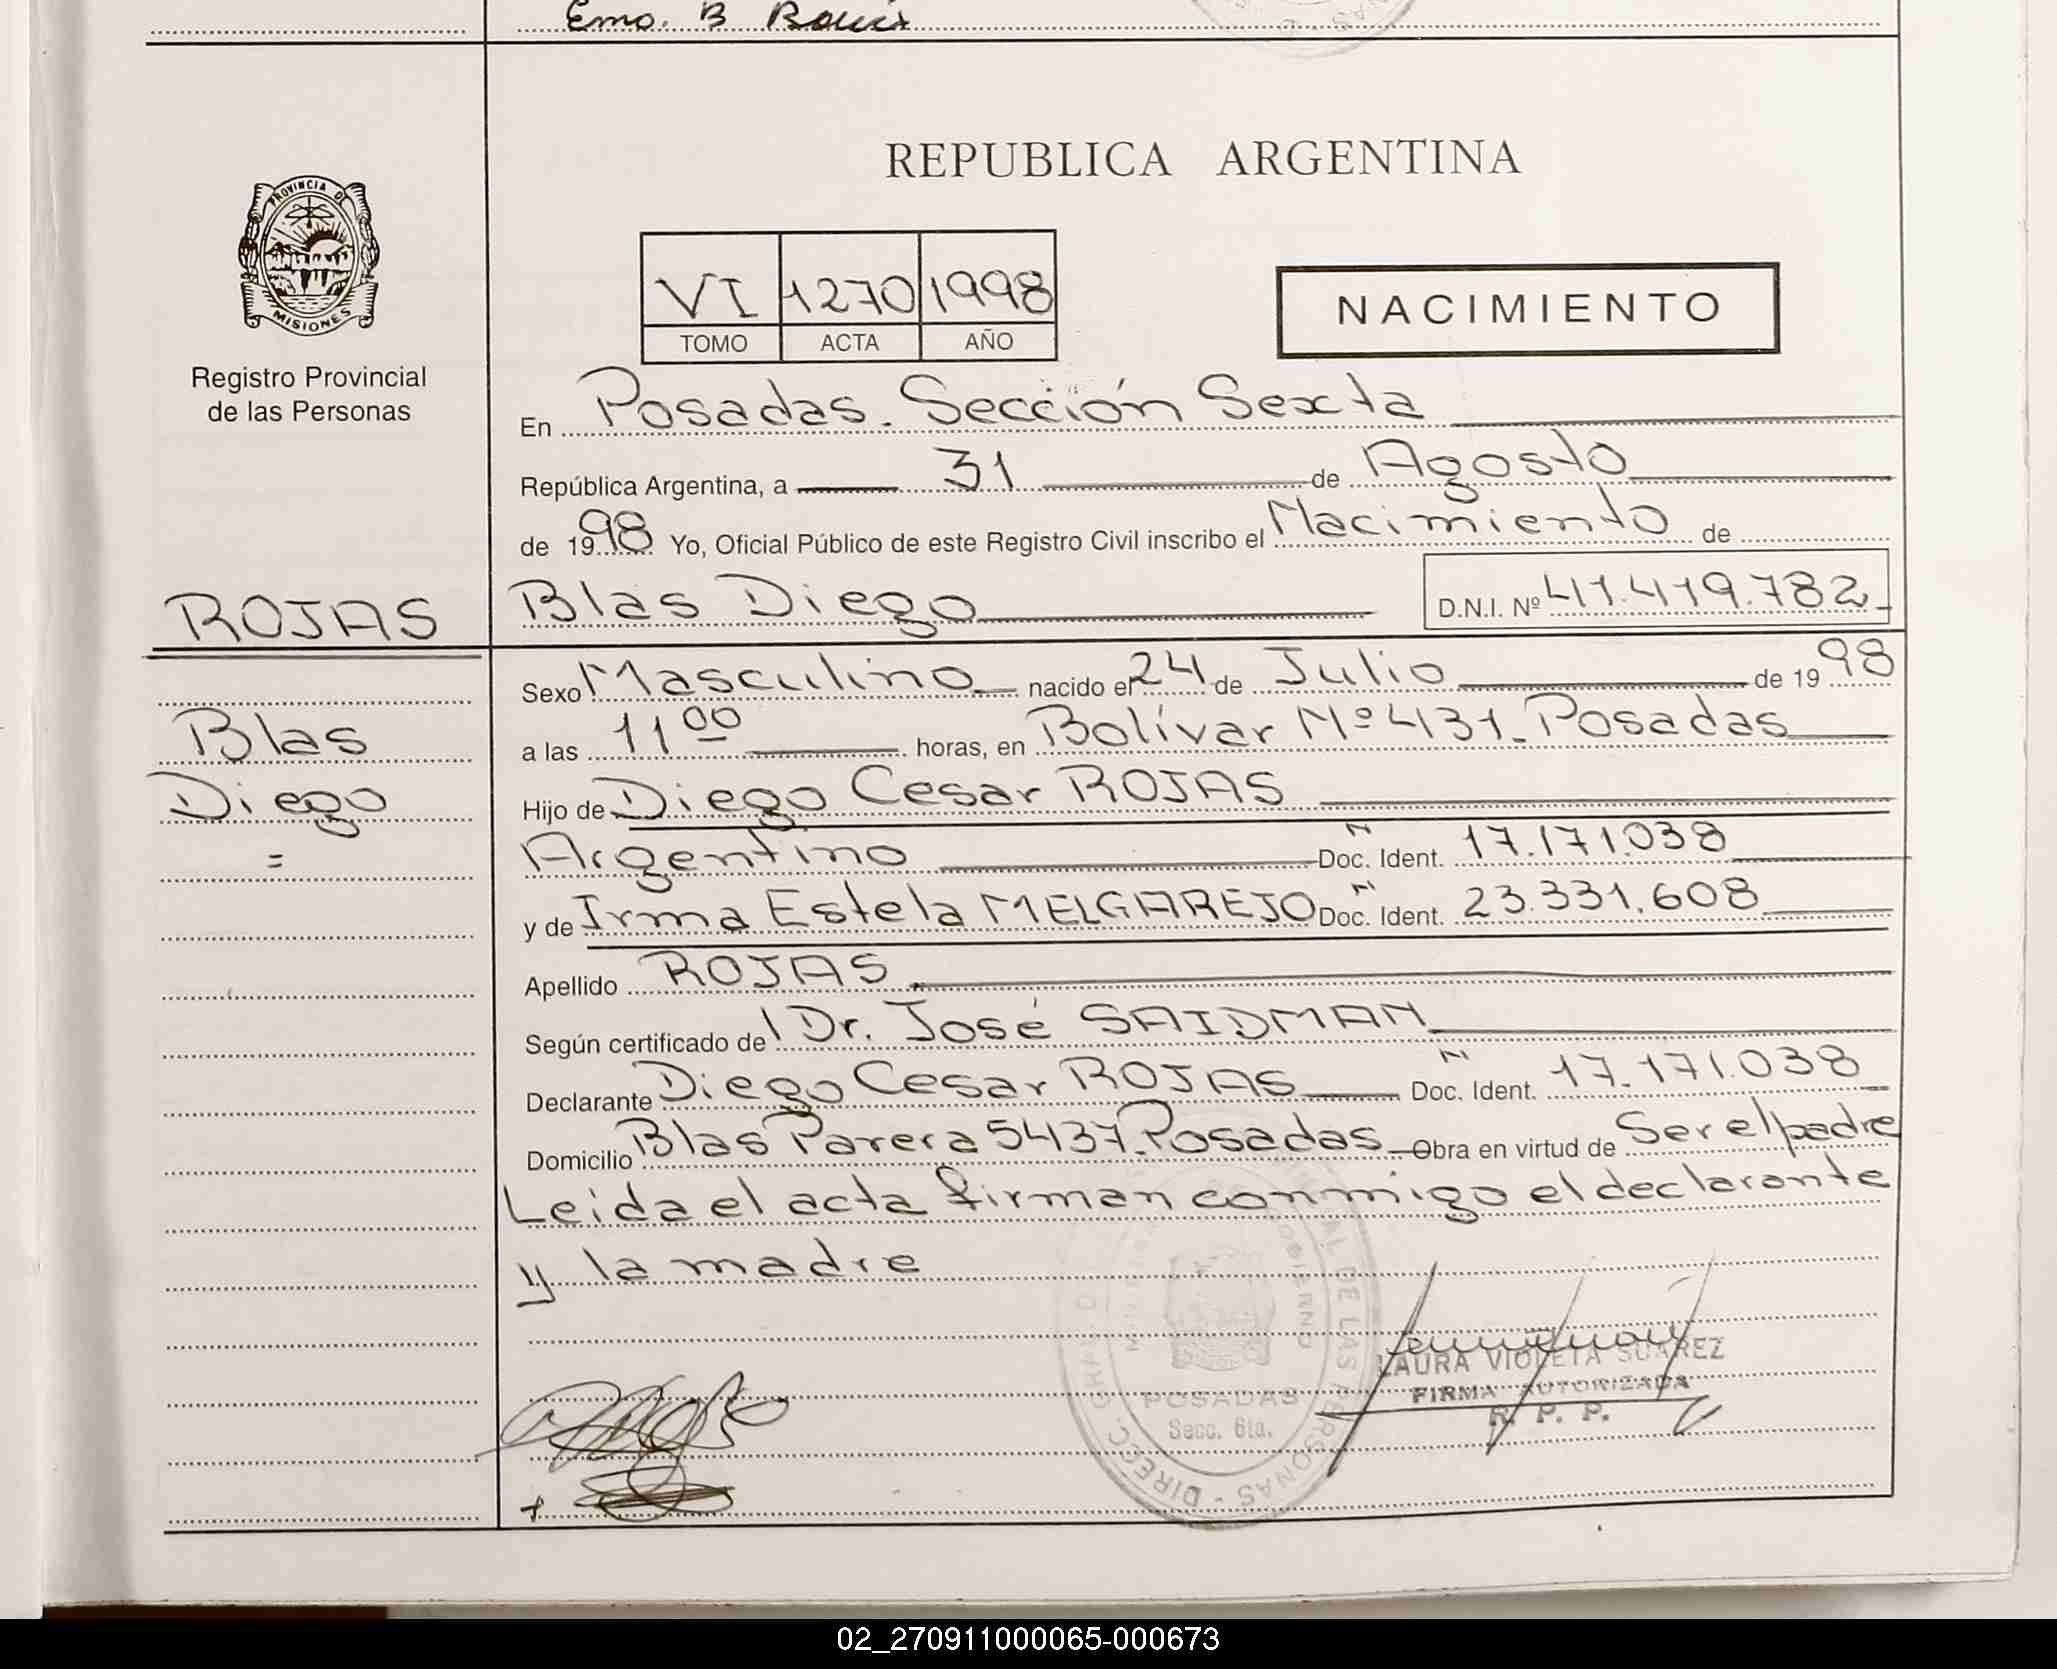 Emo. B
REPUBLICA ARGENTINA
PROVINCIA DE
MISIONES
VI 1270 1998
TOMO ACTA AÑO
NACIMIENTO
Registro Provincial
de las Personas
En Posadas. Sección Sexta
República Argentina, a 31 de Agosto
de 1998 Yo, Oficial Público de este Registro Civil inscribo el Nacimiento de
ROJAS Blas Diego D.N.I. Nº 41.419.782
Sexo Masculino nacido el 24 de Julio de 1998
Blas a las 11 00 horas, en Bolívar Nº 431. Posadas
Diego Hijo de Diego Cesar ROJAS
= Argentino Doc. Ident. N 17.171.038
y de Irma Estela MELGAREJO Doc. Ident. N 23.331.608
Apellido ROJAS
Según certificado del Dr. José SAIDMAN
Declarante Diego Cesar ROJAS Doc. Ident. N 17.171.038
Domicilio Blas Parera 5437. Posadas Obra en virtud de Ser el padre
Leida el acta firman conmigo el declarante
y la madre
LAURA VIOLETA SUAREZ
FIRMA AUTORIZADA
R. P. P.
DIRECC. GRAL. DE LAS PERSONAS
POSADAS
Secc. 6ta.
02_270911000065-000673